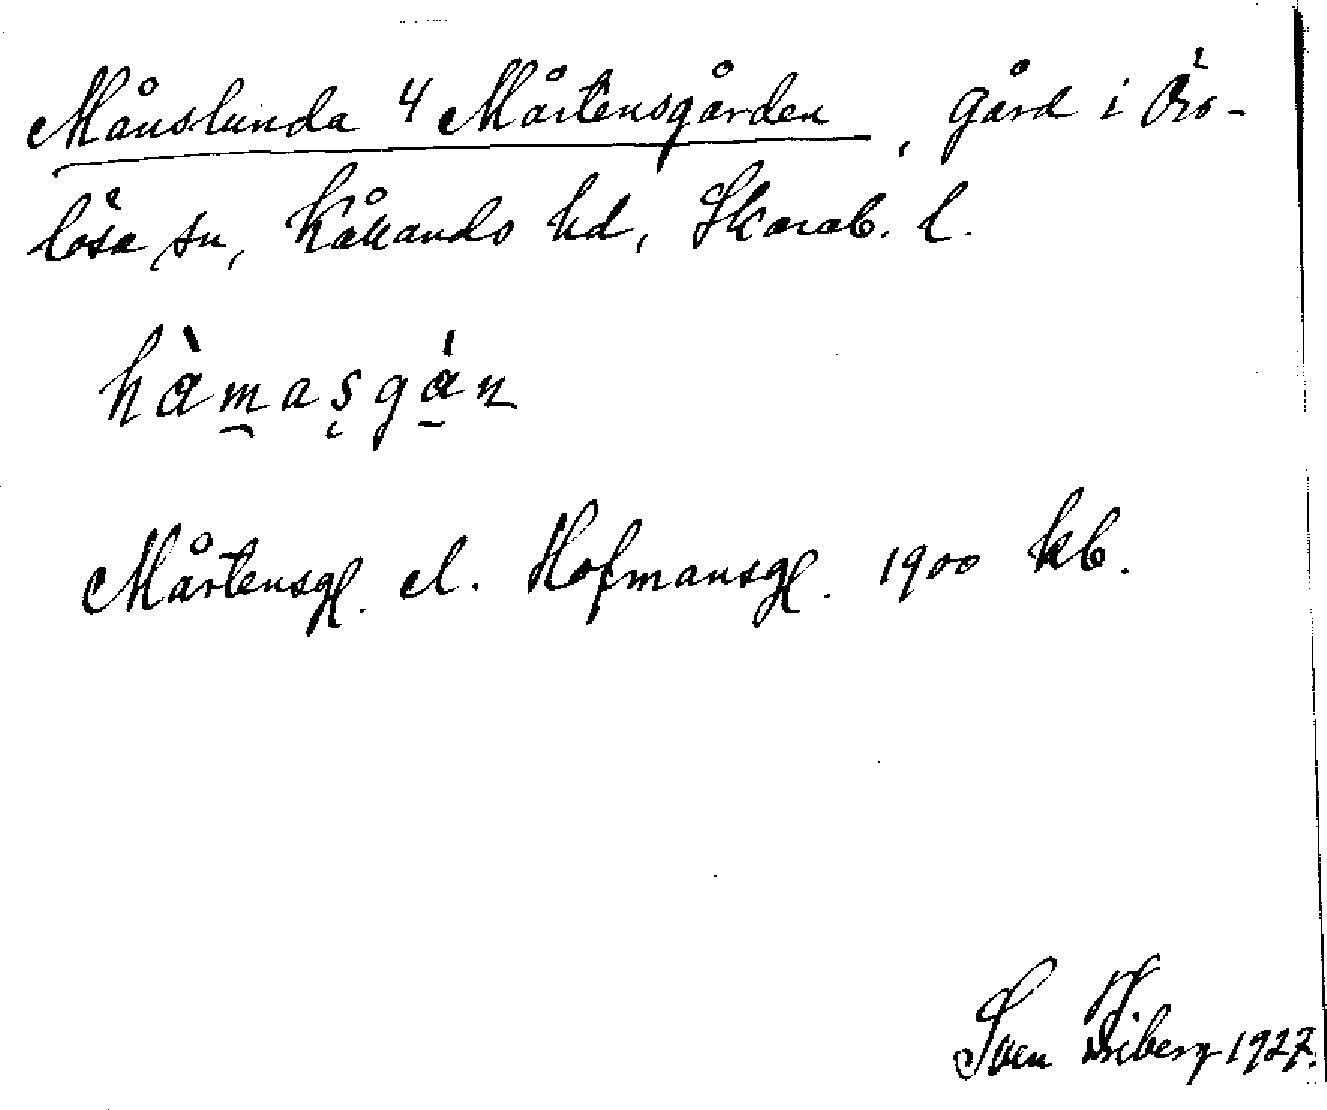 Månslunda 4 Mårtensgården, gård i Örs-
lösa sn, Kållands hd, Skarab. l.
hàmasgán
Mårtensg. el. Hofmansg. 1900 kb.
Sven Friberg 1927.